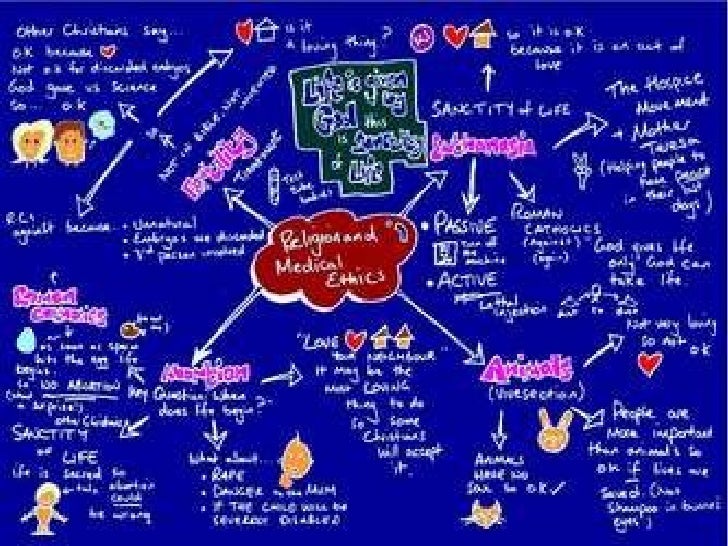 Other Christians say...
OK because
Not ok for discarded embryos
God gave us Science
So... ok
is it
a loving thing?
so it is ok
because it is an act of
love
Life is given
by
God this
is Sanctity
of
Life
SANCTITY of LIFE
The Hospice
Movement
+ Mother
Teresa
(Helping people to
have
in their last
days)
Fertility
TREATMENT
Test
tube
babies
Euthanasia
R.C.s
against because..
• Unnatural
• Embryos are discarded
• 3rd person involved
Religion and
Medical
Ethics
• PASSIVE
Turn off
the
machine
• ACTIVE
Lethal
injection
ROMAN
CATHOLICS
(against)
(again)
"God gives life
only God can
take life.
Roman
Catholics
As soon as sperm
hits the egg life
begins.
So NO ABORTION
other Christians
Abortion
Key Question: When
does life begin?
"LOVE
your NEIGHBOUR"
It may be the
most LOVING
thing to do
So some
Christians
will accept
it.
Animals
(Vivisection)
Not very loving
so not
ok
SANCTITY
OF
LIFE
life is sacred so
abortion
could
be wrong
What about....
• RAPE
• DANGER to the MUM
• IF THE CHILD WILL BE
SEVERELY DISABLED
ANIMALS
HAVE NO
SOUL SO OK ✓
People are
more important
than animals so
ok if lives are
saved. (Not
Shampoo in bunnies
eyes)